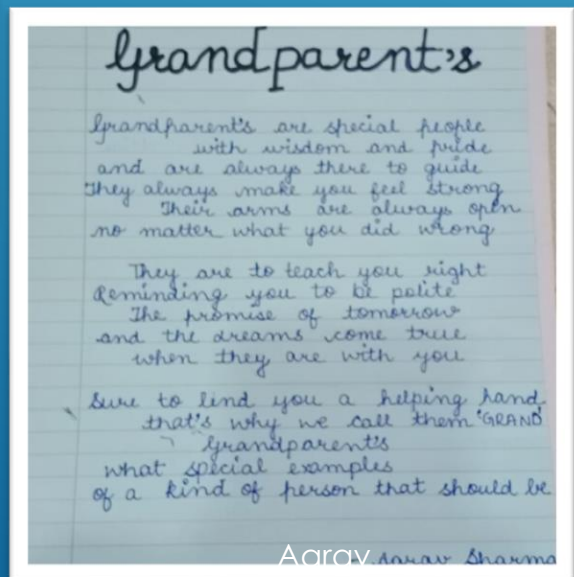 Grandparent's
Grandparent's are special people
with wisdom and pride
and are always there to guide
They always make you feel strong
Their arms are always open
no matter what you did wrong
They are to teach you right
Reminding you to be polite
The promise of tomorrow
and the dreams come true
when they are with you
Sure to lend you a helping hand
that's why we call them 'GRAND'
Grandparent's
what special examples
of a kind of person that should be
Aarav
- Aarav Sharma